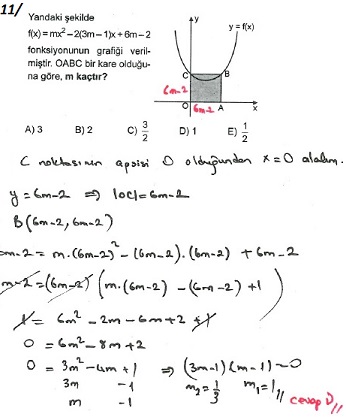 11/
Yandaki şekilde
f(x) = mx² – 2(3m – 1)x + 6m – 2
fonksiyonunun grafiği veril-
miştir. OABC bir kare olduğu-
na göre, m kaçtır?
y
y = f(x)
C
B
6m-2
O
6m-2
A
x
A) 3 B) 2 C) 3/2 D) 1 E) 1/2
C noktasının apsisi 0 olduğundan x=0 alalım.
y = 6m-2 ⇒ |OC| = 6m-2
B(6m-2, 6m-2)
6m-2 = m.(6m-2)² - (6m-2).(6m-2) + 6m-2
6m-2 = (6m-2) (m.(6m-2) - (6m-2) + 1)
1 = 6m² - 2m - 6m + 2 + 1
0 = 6m² - 8m + 2
0 = 3m² - 4m + 1 ⇒ (3m-1)(m-1) = 0
3m -1 m₂ = 1/3 m₁ = 1 //
m -1 cevap D //